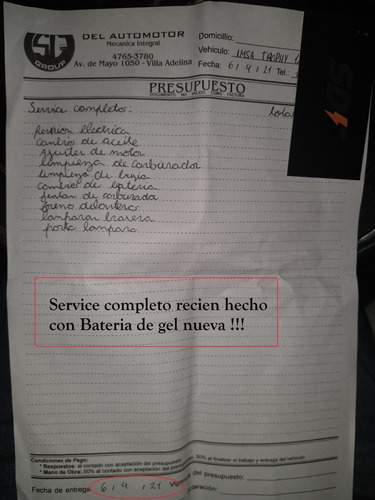 SG GROUP
DEL AUTOMOTOR
Mecanica Integral
4765-3780
Av. de Mayo 1050 - Villa Adelina
Domicilio:
Vehiculo: IMSA TROPHY
Fecha: 6/4/21 Tel.:
PRESUPUESTO
DOCUMENTO NO VALIDO COMO FACTURA
Service completo:
Revision electrica
cambio de aceite
ajuste de motor
limpieza de carburador
limpieza de bujia
cambio de bateria
juntas de carburador
freno delantero
lampara trasera
porta lampara
Service completo recien hecho
con Bateria de gel nueva !!!
Condiciones de Pago:
* Repuestos: al contado con aceptación del presupuesto
* Mano de Obra: 50% al contado con aceptación del presupuesto, 50% al finalizar el trabajo y entrega del vehículo
Fecha de entrega 6/4/21
del presupuesto: